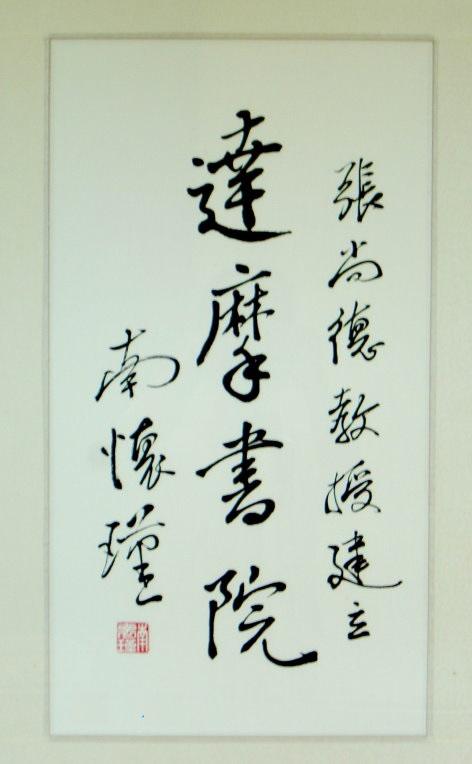 張尚德教授建立
達摩書院
南懷瑾